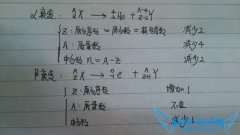 α衰变: ᴬ_Z X → ⁴₂He + ᴬ⁻⁴_Z₋₂ Y
Z: 原子序数 = 质子数 = 核电荷数 减少2
A: 质量数 减少4
中子数 n = A - Z 减少2
β衰变: ᴬ_Z X → ⁰₋₁e + ᴬ_Z₊₁ Y
Z: 原子序数 增加1
A: 质量数 不变
中子数 减少1